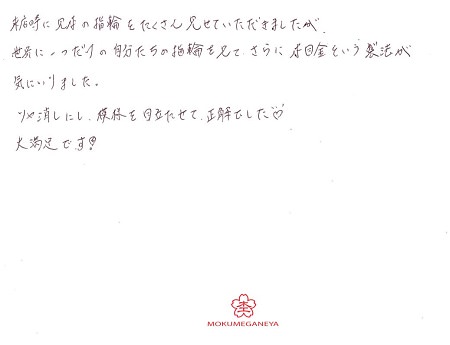 来店時に見本の指輪をたくさん見せていただきましたが、
世界に一つだけの自分たちの指輪を見て、さらに木目金という製法が
気にいりました。
ツヤ消しにし、模様を目立たせて、正解でした♡
大満足です!
MOKUMEGANEYA